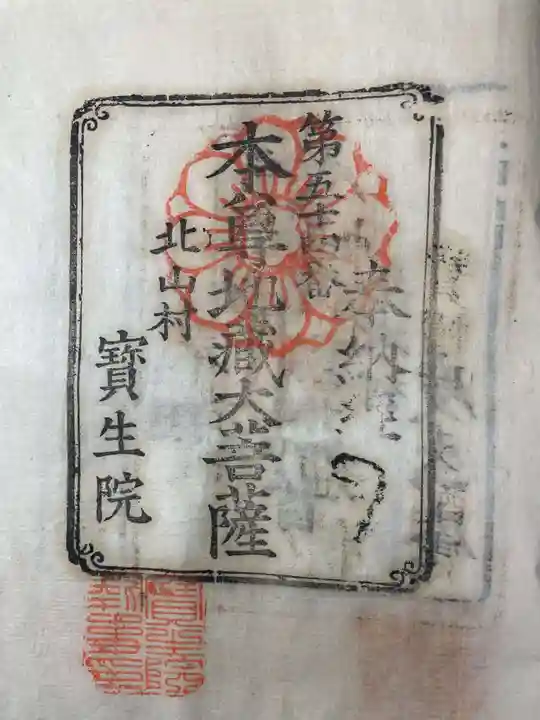 奉納経
第五十四番
本尊地蔵大菩薩
北山村
寶生院